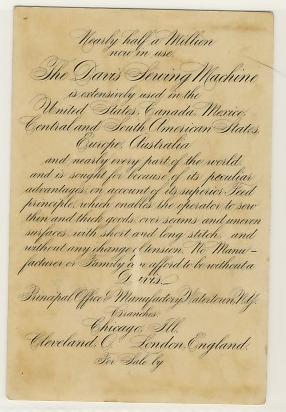 Nearly half a Million
now in use.
The Davis Sewing Machine
is extensively used in the
United States, Canada, Mexico,
Central and South American States,
Europe, Australia
and nearly every part of the world,
and is sought for because of its peculiar
advantages, on account of its superior Feed
principle, which enables the operator to sew
thin and thick goods, over seams and uneven
surfaces, with short and long stitch, and
without any change of tension. No Manu-
facturer or Family can afford to be without a
Davis.
Principal Office & Manufactory, Watertown, N.Y.
Branches:
Chicago, Ill.
Cleveland, O. London, England.
For Sale by